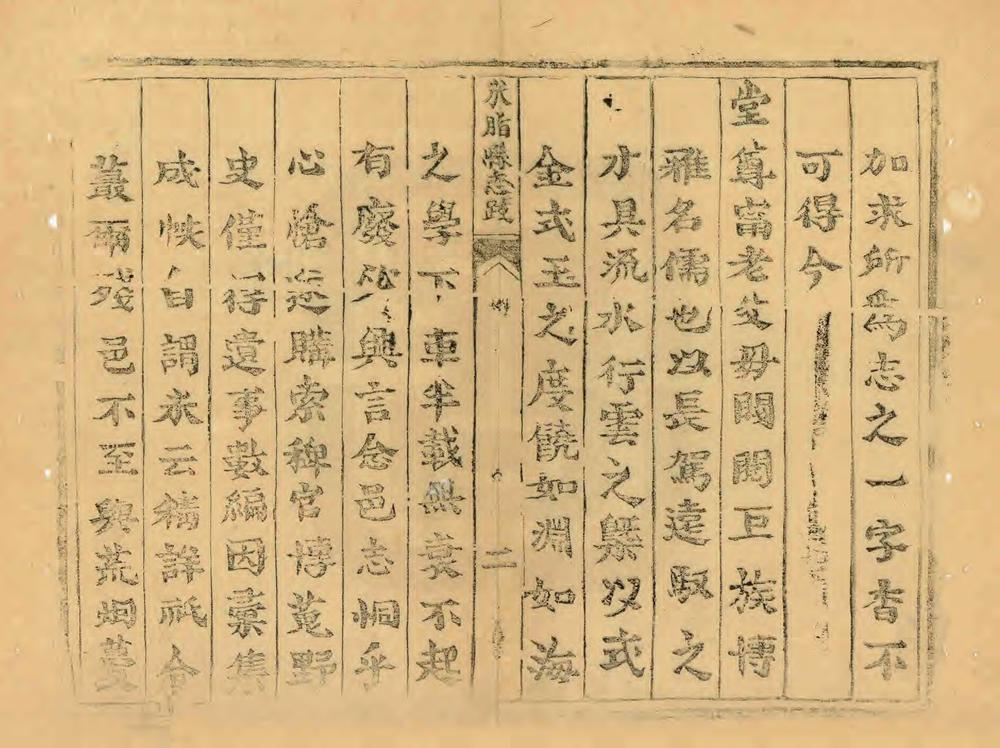 加求所爲志之一字杳不
可得今
堂尊當老父毋閥閱巨族博
雅名儒也以長駕遠馭之
才具流水行雲之槩以式
金式玉之度饒如淵如海
米脂縣志跋
二
之學下車半載無衰不起
有廢必興言念邑志恫乎
心愴遂購索稗官博蒐野
史僅得遺事數編因彙集
成帙自謂未云稱詳祇令
叢爾殘邑不至與荒烟蔓